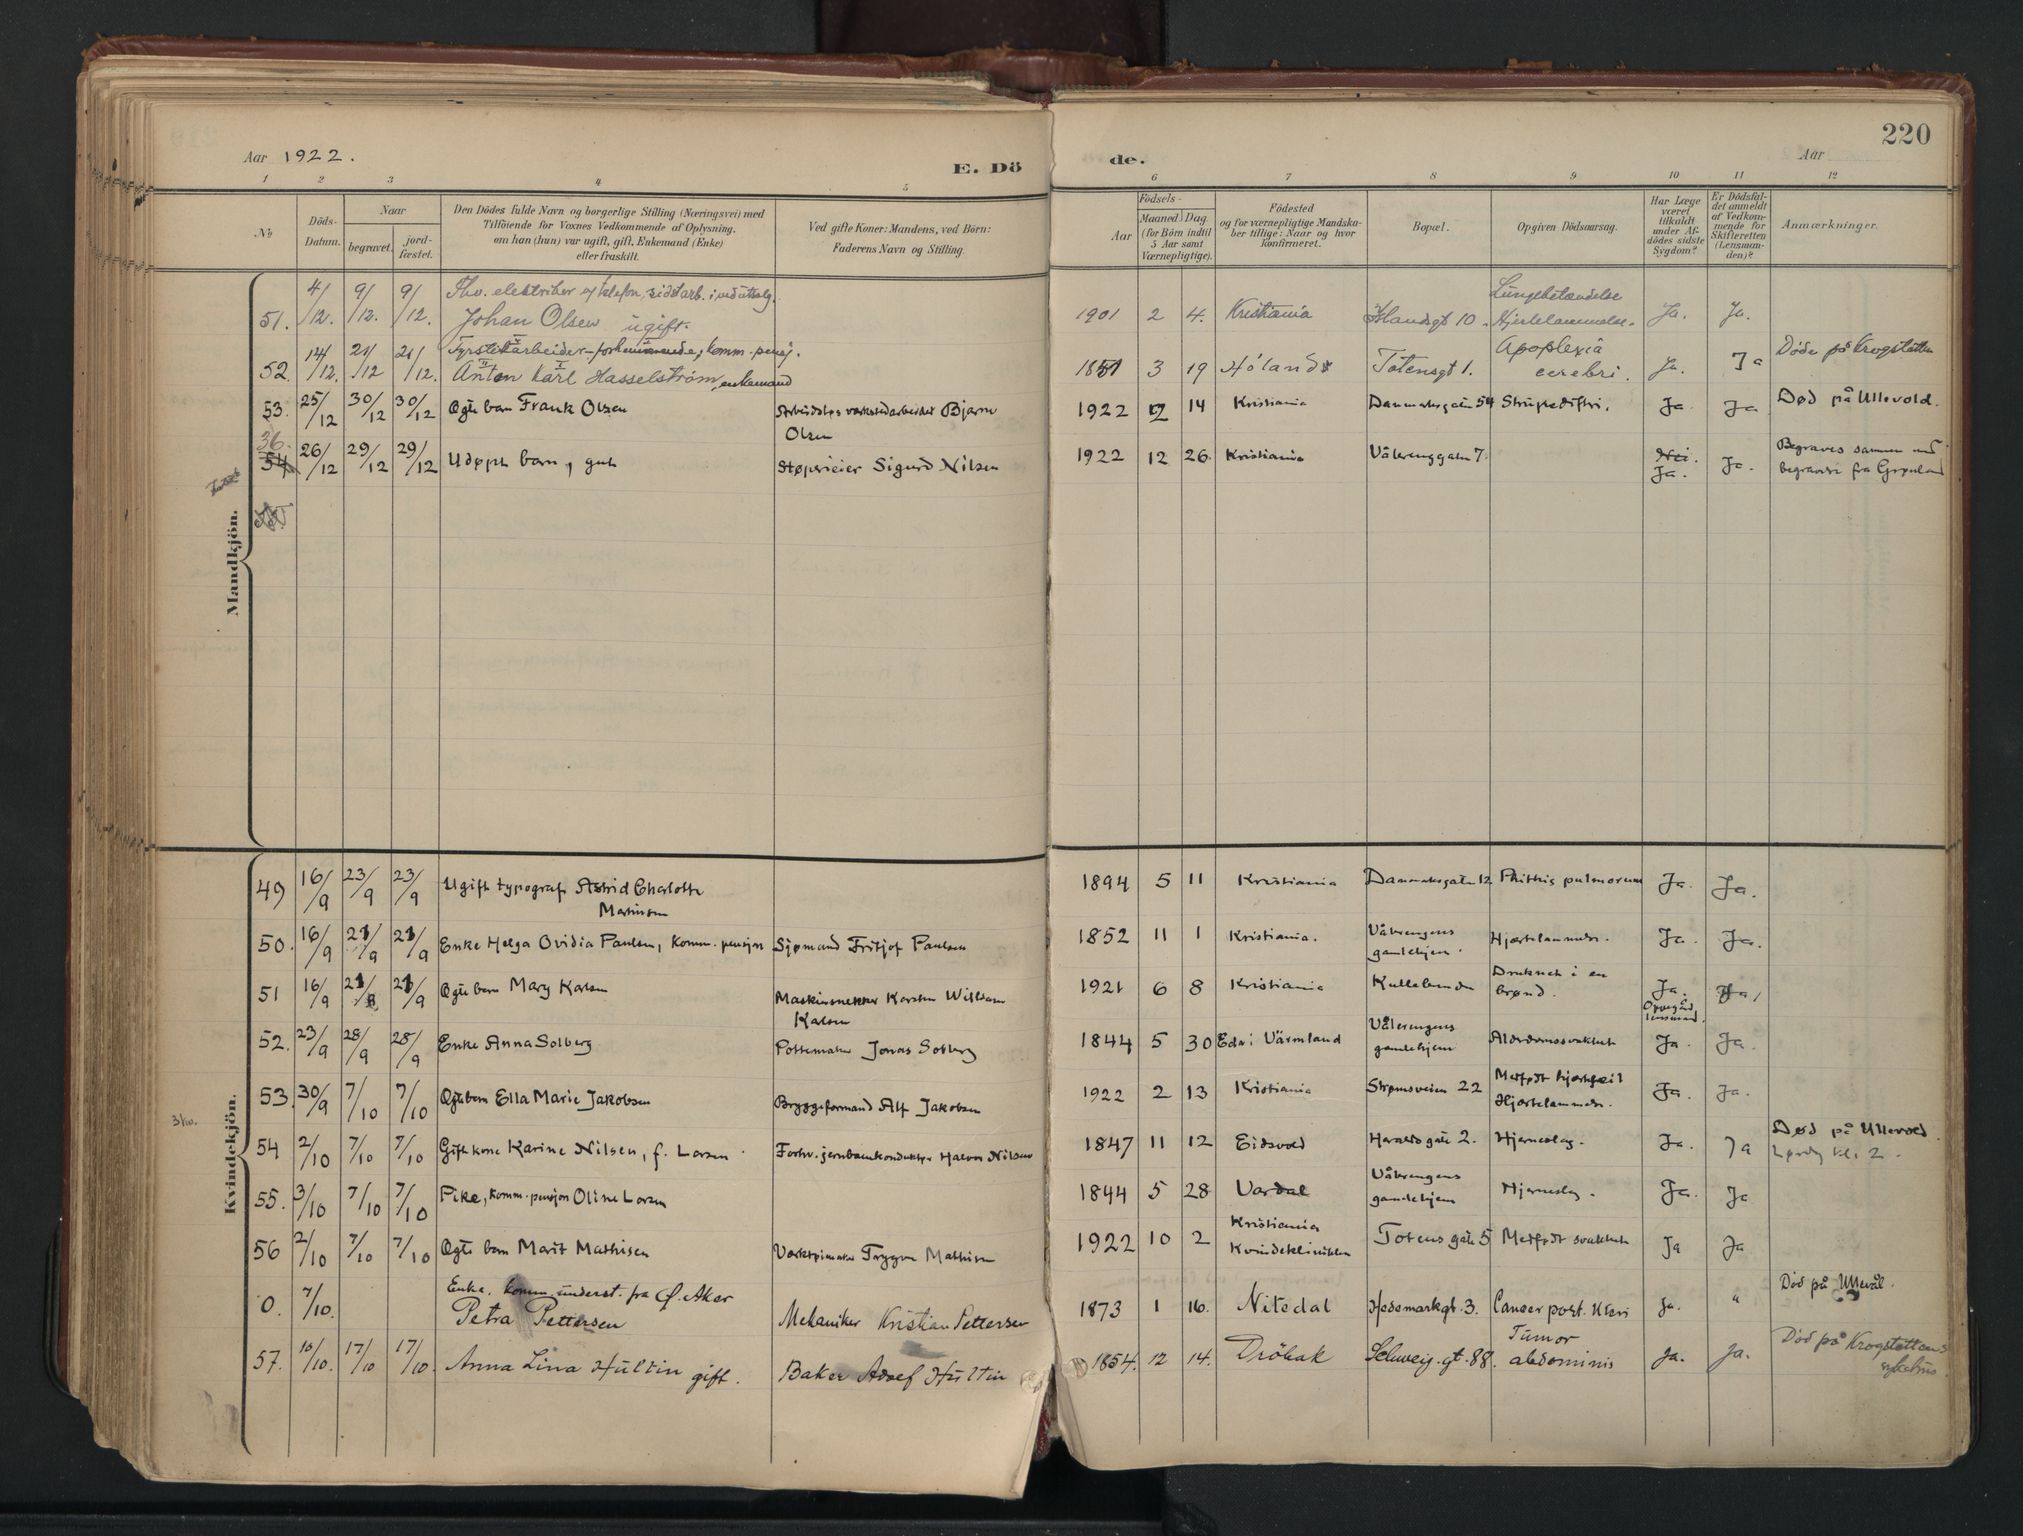 220
Aar 1922.
E. Dö
de.
Aar
1 2 3 4 5 6 7 8 9 10 11 12
№
Döds-Datum.
Naar
begravet.
jord-fæstet.
Den Dödes fulde Navn og borgerlige Stilling (Næringsvei) med
Tilföiende for Voxnes Vedkommende af Oplysning.
om han (hun) var ugift, gift, Enkemand (Enke)
eller fraskilt.
Ved gifte Koner: Mandens, ved Börn:
Faderens Navn og Stilling.
Födsels-
Aar
Maaned
Dag.
(for Börn indtil
5 Aar samt
Værnepligtige).
Födested
og for værnepligtige Mandska-
ber tillige: Naar og hvor
konfirmeret.
Bopæl.
Opgiven Dödsaarsag.
Har Læge
været
tilkaldt
under Af-
dödes sidste
Sygdom?
Er Dödsfal-
det anmeldt
af Vedkom-
mende for
Skifteretten
(Lensman-
den)?
Anmærkninger.
Mandkjön.
51. 4/12. 9/12. 9/12. Fhv. elektriker ved telefon, sidst arb. i vedutsalg. Lungebetændelse
Johan Olsen ugift. 1901 2 4. Kristiania Islandsgt 10. Hjertelammelse. Ja. Ja.
52. 14/12. 21/12 21/12. Fyrstikarbeider, komm. pensj. Apoplexia Döde på Krogstøtten
Anton Karl Hasselström enkemand 1851 3 19 Höland Totensgt 1. cerebri. Ja. Ja
53. 25/12 30/12 30/12 Ogte barn Frank Olsen Arbeidsløs verkstedarbeider Bjarne 1922 12 14 Kristiania Danmarksgaten 54 Strupedifteri. Ja Ja Død på Ullevold.
Olsen
36.
54 26/12 29/12 29/12 Udøpt barn, gut Støperieier Sigurd Nilsen 1922 12 26. Kristiania Vålerenggaten 7. Nei. Ja. Begraves sammen med
Ja. begravelse fra Grønland
Kvindekjön.
49 16/9 23/9 23/9 Ugift typograf Astrid Charlotte 1894 5 11 Kristiania Danmarksgaten 12 Phithis pulmorum Ja. Ja.
Martinsen
50. 16/9 21/9 21/9 Enke Helga Ovidia Paulsen, komm. pensjon Sjømand Fritjof Paulsen 1852 11 1 Kristiania. Vålerengens Hjertelammelse. Ja. Ja.
gamlehjem.
51 16/9 21/9 21/9 Ogte barn Mary Karlsen Maskinsmekker Karsten William 1921 6 8 Kristiania Druknet i en Ja. Ja
Karlsen brønd. Opgave lensmand.
52. 23/9 28/9 28/9 Enke Anna Solberg Pottemaker Jonas Solberg 1844 5 30 Eda i Värmland Vålerengens Alderdomssvakhet Ja Ja.
gamlehjem
53. 30/9 7/10 7/10 Ogte barn Ella Marie Jakobsen Bryggeformand Alf Jakobsen 1922 2 13 Kristiania Strømsveien 22 Medfødt hjertefeil Ja. Ja.
Hjertelammelse.
3/10.
54 2/10 7/10 7/10 Gift kone Karine Nilsen, f. Larsen Forhv. jernbanekonduktør Halvor Nilsen 1847 11 12 Eidsvold Haraldsgate 2. Hjerneslag. Ja. Ja Død på Ullevold.
Lørdag kl. 2.
55. 3/10 7/10 7/10 Pike, komm. pensjon Oline Larsen 1844 5 28 Vardal Vålerengens Hjerneslag. Ja. Ja
gamlehjem
56 2/10 7/10 7/10 Ogte barn Marit Mathisen Verktøimaker Trygve Mathisen 1922 10 2 Kristiania Totens gate 5 Medfødt svakhet Ja Ja
Kvindeklinikken
0. 7/10. Enke, komm. underst. fra Ø. Aker Död på Ullevål.
Petra Pettersen Mekaniker Kristian Pettersen 1873 1 16. Nitedal Hedemarkgt. 3. Cancer port. uteri Ja. "
57. 10/10. 17/10 17/10. Anna Lina Hultin gift. Baker Adolf Hultin 1854. 12 14. Dröbak Schweig. gt. 88. Tumor abdominis Ja. Ja. Död på Krogstøttens
sykehus.